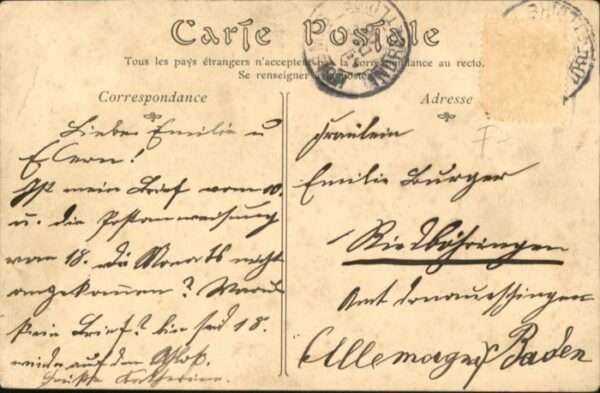 Carte Postale
Tous les pays étrangers n'acceptent la correspondance au recto.
Se renseigner
Correspondance
Adresse
Liebe Emilie u
Eltern!
Ist mein Brief vom 10.
u. die Postanweisung
vom 18. ds Monats nicht
angekommen? Warum
kein Brief? bin seit 18.
wieder auf dem
Fräulein
Emilie Burger
Riedböhringen
Amt Donaueschingen
Allemagne Baden